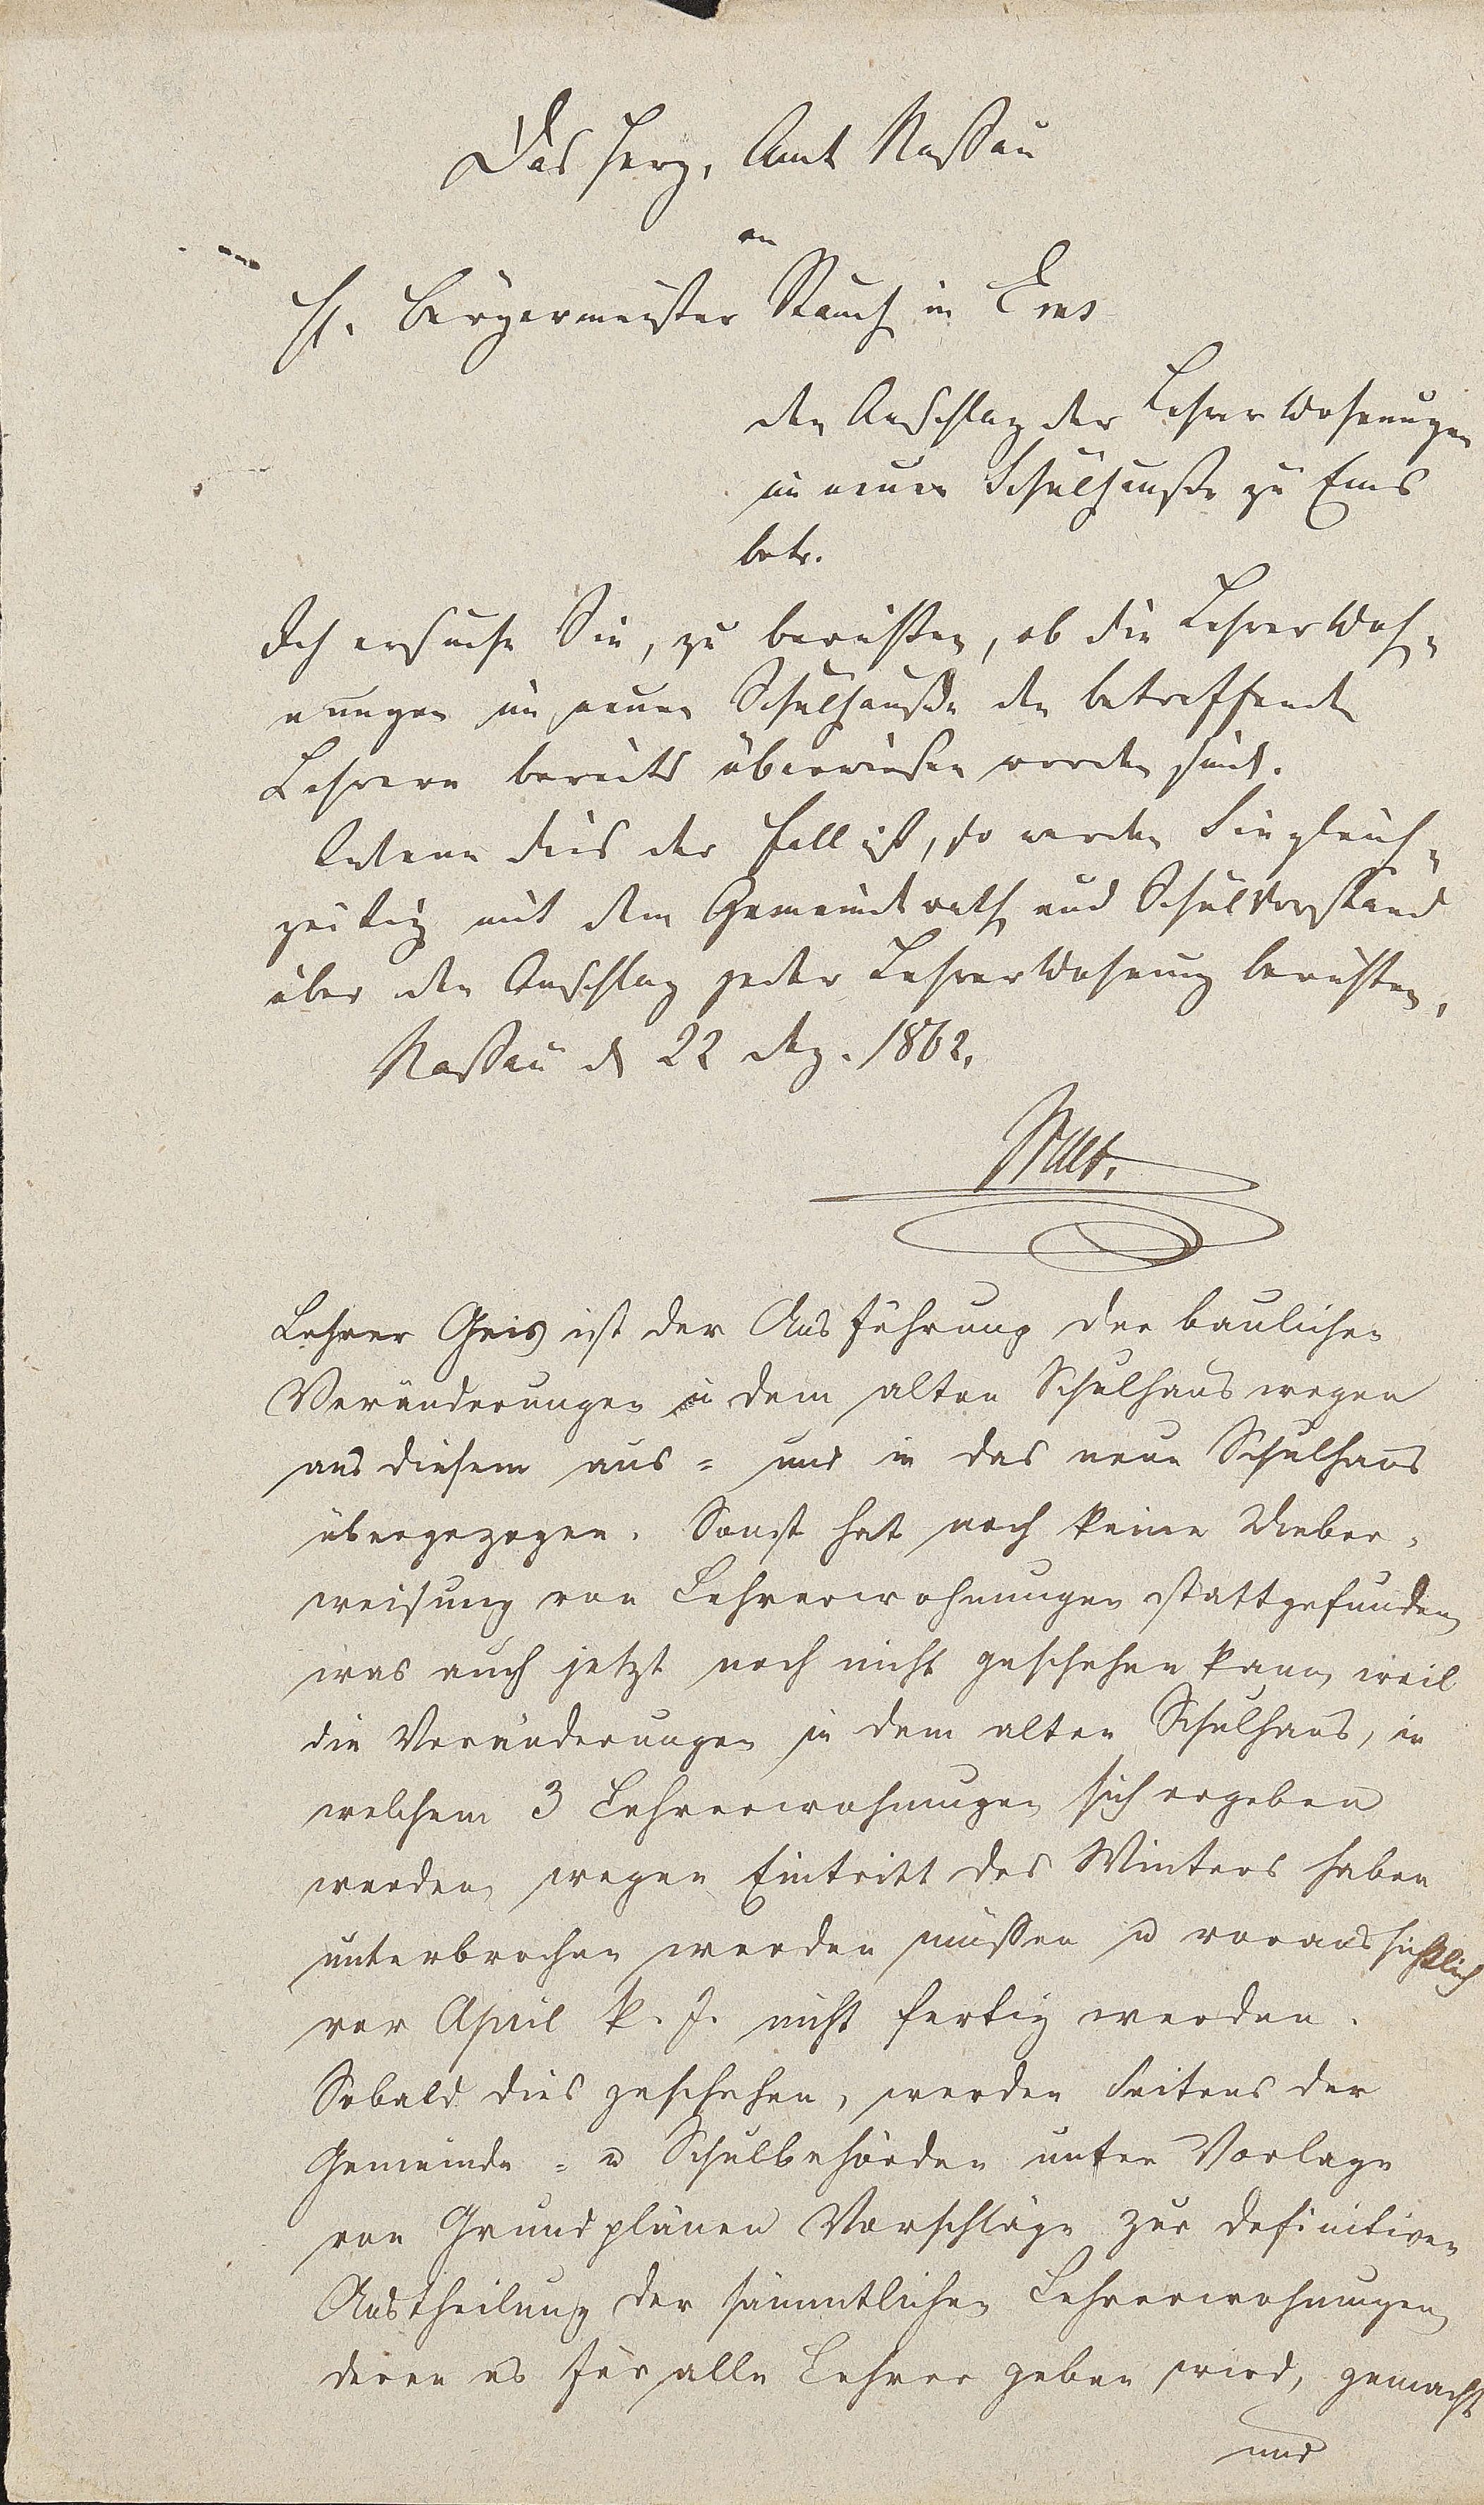 Das Herz. Amt Nassau
an
H. Bürgermeister Rauch in Ems
den Anschlag der Lehrer Wohnungen
im neuen Schulhauße zu Ems
betr.
Ich ersuche Sie, zu berichten, ob die Lehrer Woh-
nungen im neuen Schulhauße den betreffenden
Lehrern bereits überwiesen worden sind.
Wenn dies der Fall ist, so werden Sie gleich-
zeitig mit dem Gemeinderath und Schulvorstand
über den Anschlag jeder Lehrer Wohnung berichten.
Nassau d 22 Dez. 1862.
Lehrer Geis ist der Ausführung der baulichen
Veränderungen in dem alten Schulhaus wegen
aus diesem aus- und in das neue Schulhaus
übergezogen. Sonst hat noch keine Ueber-
weisung von Lehrerwohnungen stattgefunden,
was auch jetzt noch nicht geschehen kann, weil
die Veränderungen in dem alten Schulhaus, in
welchem 3 Lehrerwohnungen sich ergeben
werden, wegen Eintritt des Winters haben
unterbrochen werden müssen u voraussichtlich
vor April k. J. nicht fertig werden.
Sobald dies geschehen, werden Seitens der
Gemeinde- u Schulbehörden unter Vorlage
von Grundplänen Vorschläge zur definitiven
Austheilung der sämmtlichen Lehrerwohnungen,
deren es für alle Lehrer geben wird, gemacht
und